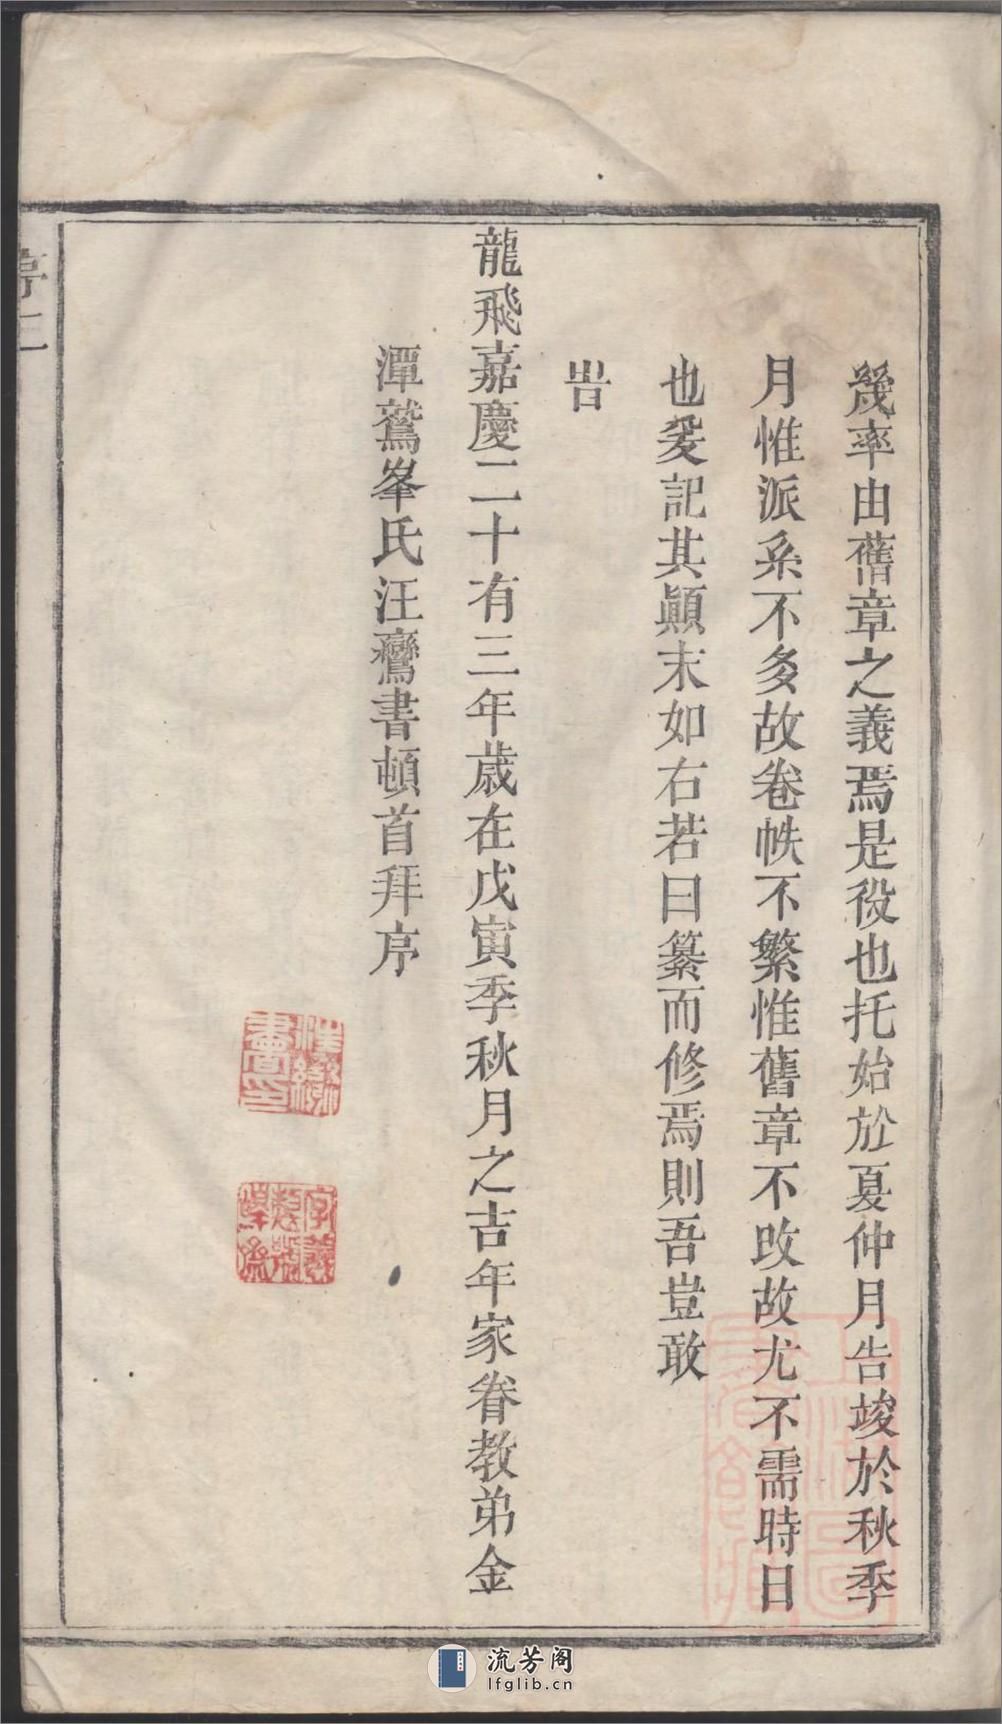 幾率由舊章之義焉是役也托始於夏仲月告竣於秋季
月惟派系不多故卷帙不繁惟舊章不改故尤不需時日
也爰記其顚末如右若曰纂而修焉則吾豈敢
旹
龍飛嘉慶二十有三年歲在戊寅季秋月之吉年家眷教弟金
潭鷲峯氏汪鸞書頓首拜序
流芳阁
lfglib.cn